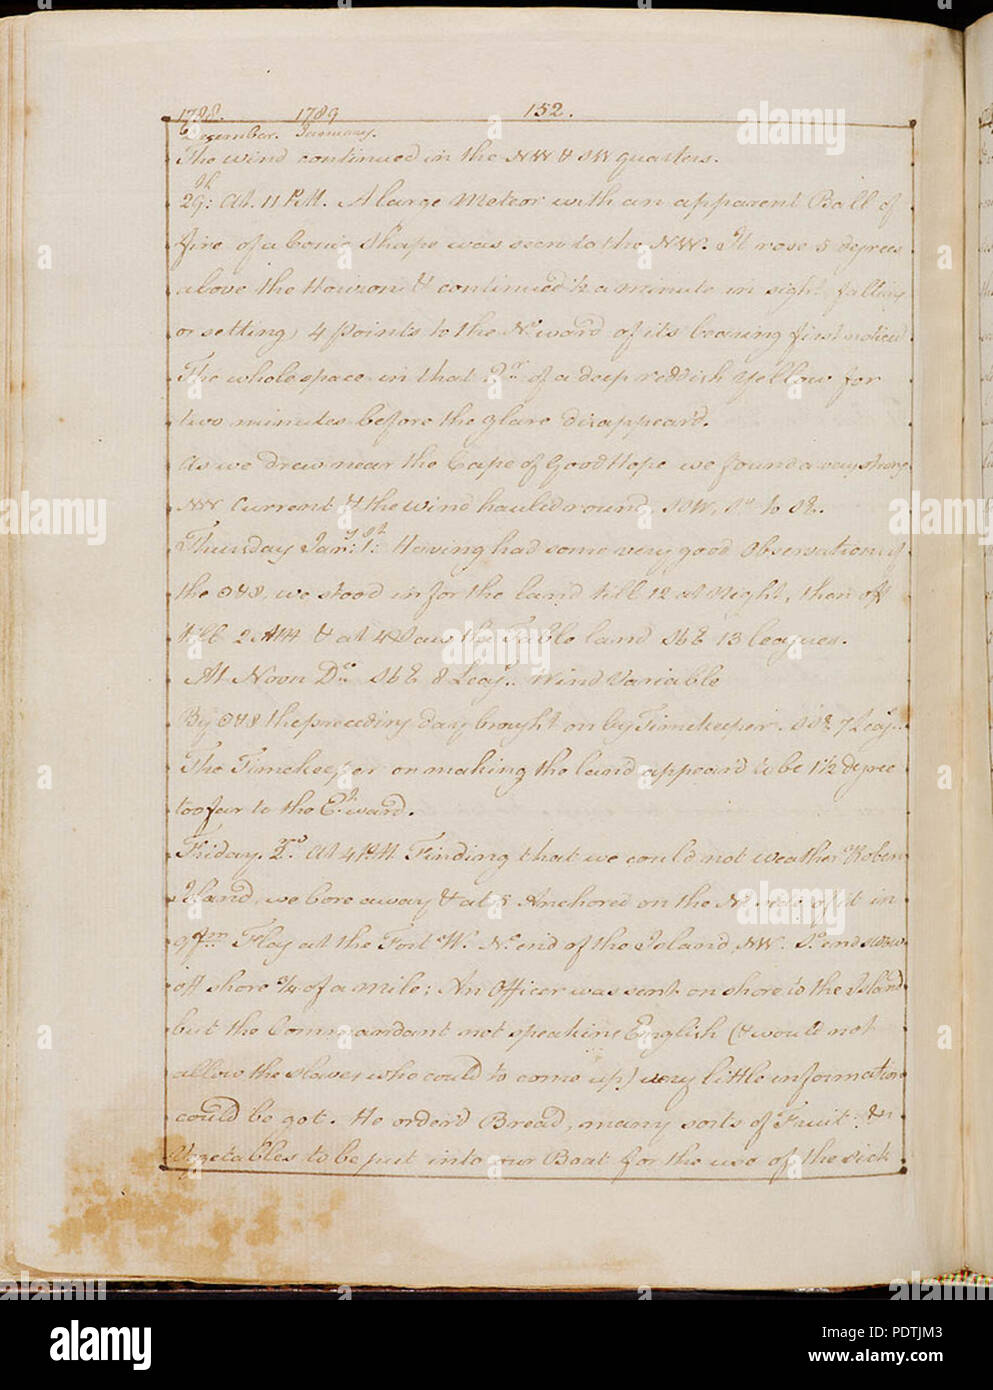 1788. 1789 152.
December. January.
The wind continued in the NW & SW quarters.
29th: At. 11 PM. A large Meteor with an apparent Ball of
fire of a Conic Shape was seen to the NW. It rose 5 degrees
above the Horizon & continued ½ a minute in sight, falling
or setting, 4 points to the No ward of its bearing first noticed
The whole space in that Qr of a deep reddish Yellow for
two minutes before the glare disappear'd.
As we drew near the Cape of Good Hope we found a very strong
NW Current & the wind hauled round, SSW, So to SE.
Thursday Jany: 1st: Having had some very good Observations of
the we stood in for the land till 12 at Night, then off
till 2 AM & at 4 saw the Table land SbE 13 leagues.
At Noon Do SbE 8 Leags. Wind Variable
By the preceding day brought on by Timekeeper. 7 Leags.
The Timekeeper on making the land appear'd to be 1½ degree
too far to the Et ward.
Friday. 2nd. At 4 PM Finding that we could not weather Roben
Island, we bore away & at 5 Anchored on the No side of it in
9 fm Flag at the Fort W. No end of the Island, NW. So end
off shore ¾ of a mile; An Officer was sent on shore to the Island
but the Commandant not speaking English (& would not
allow the slaves who could to come up) very little information
could be got. He order'd Bread, many sorts of Fruit &
Vegetables to be put into our Boat for the use of the sick
alamy
a
alamy
PDTJM3
www.alamy.com